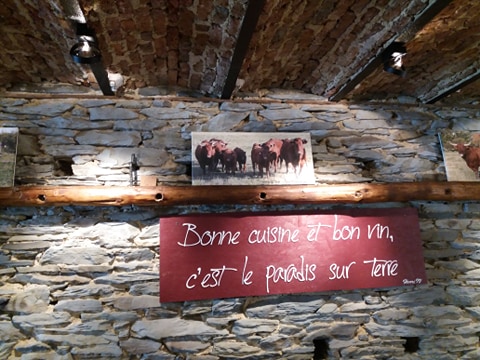 Bonne cuisine et bon vin,
c'est le paradis sur terre